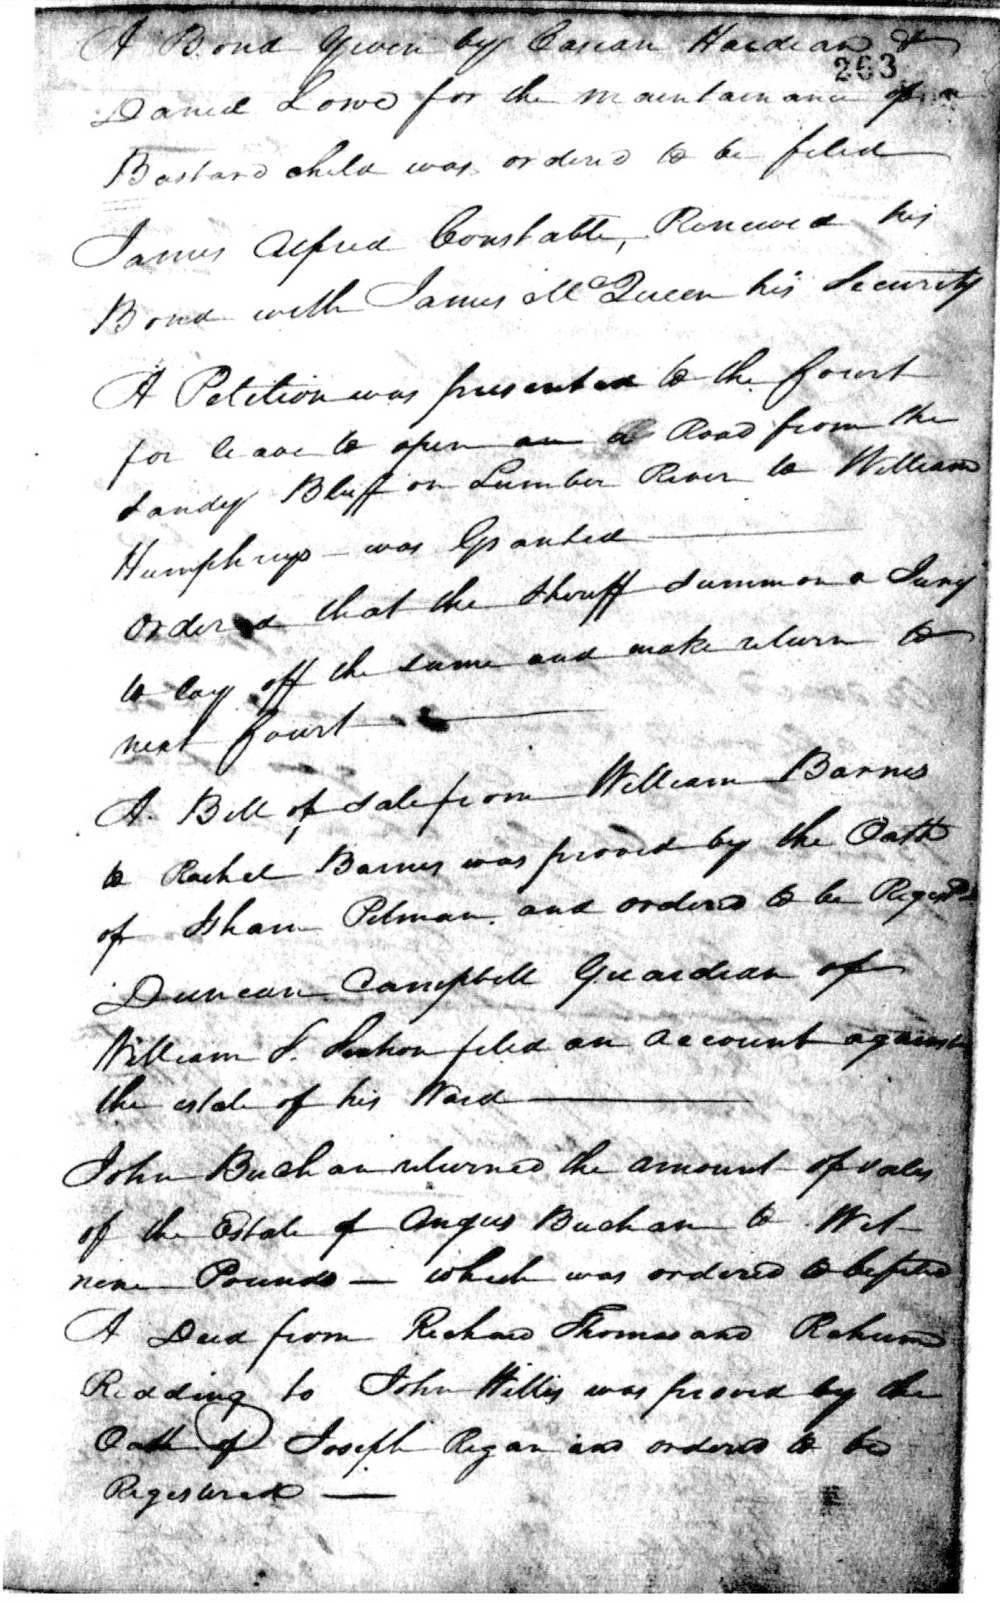 A Bond Given by Hardean &
263
Daniel Lowe for the maintainance of a
Bastard child was ordered to be filed
James Alfred Constable, Renewed his
Bond with James McQueen his Security
A Petition was presented to the Court
for leave to open a Road from the
Sandy Bluff on Lumber River to William
Humphreys – was Granted
Ordered that the Sheriff Summon a Jury
to lay off the same and make return to
next Court
A Bill of Sale from William Barnes
to Rachel Barnes was proved by the Oath
of Isham Pitman and ordered to be Registd
Duncan Campbell Guardian of
William S. filed an account against
the estate of his Ward
John Buchan returned the amount of sales
of the Estate of Angus Buchan to
nine Pounds – which was ordered to be filed
A Deed from Richard Thomas and
Redding to John Willis was proved by the
Oath of Joseph Regan and ordered to be
Registered –